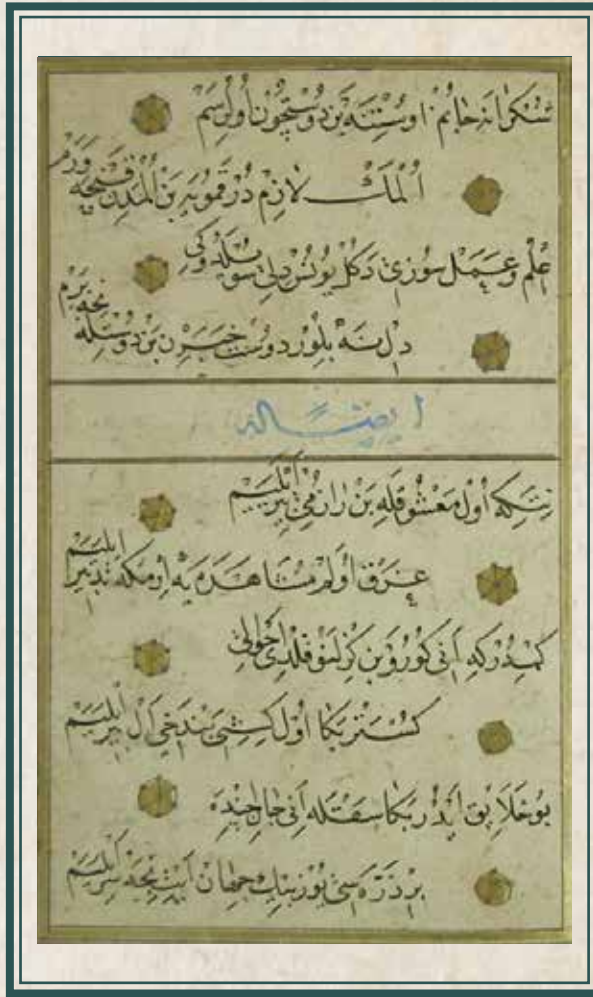 شكرانه جانم اوستنه بن دوستچون اولرسم
المك لازم درقموية بن المدن قنجه ورم
علم و عمل سوزى دكل يونس دلى سويلدوكى
دل نه بلور دوست خبرن بن دوستله نجه يرم
ايضاً له
نتكه اول معشوقله بن رازمى بير ايليم
غرق اولم مشاهده يه ارمكه تدبير ايليم
كمدر كه انى كوروبن كزلنو قلدى احوالى
كسترنكا اول كشى بندخى ال بير ايليم
بو خلايق ايدر بكا سقتله انى جان ايچنده
بر ذره سى يوز بيك جهان ايت نجه سر ايليم